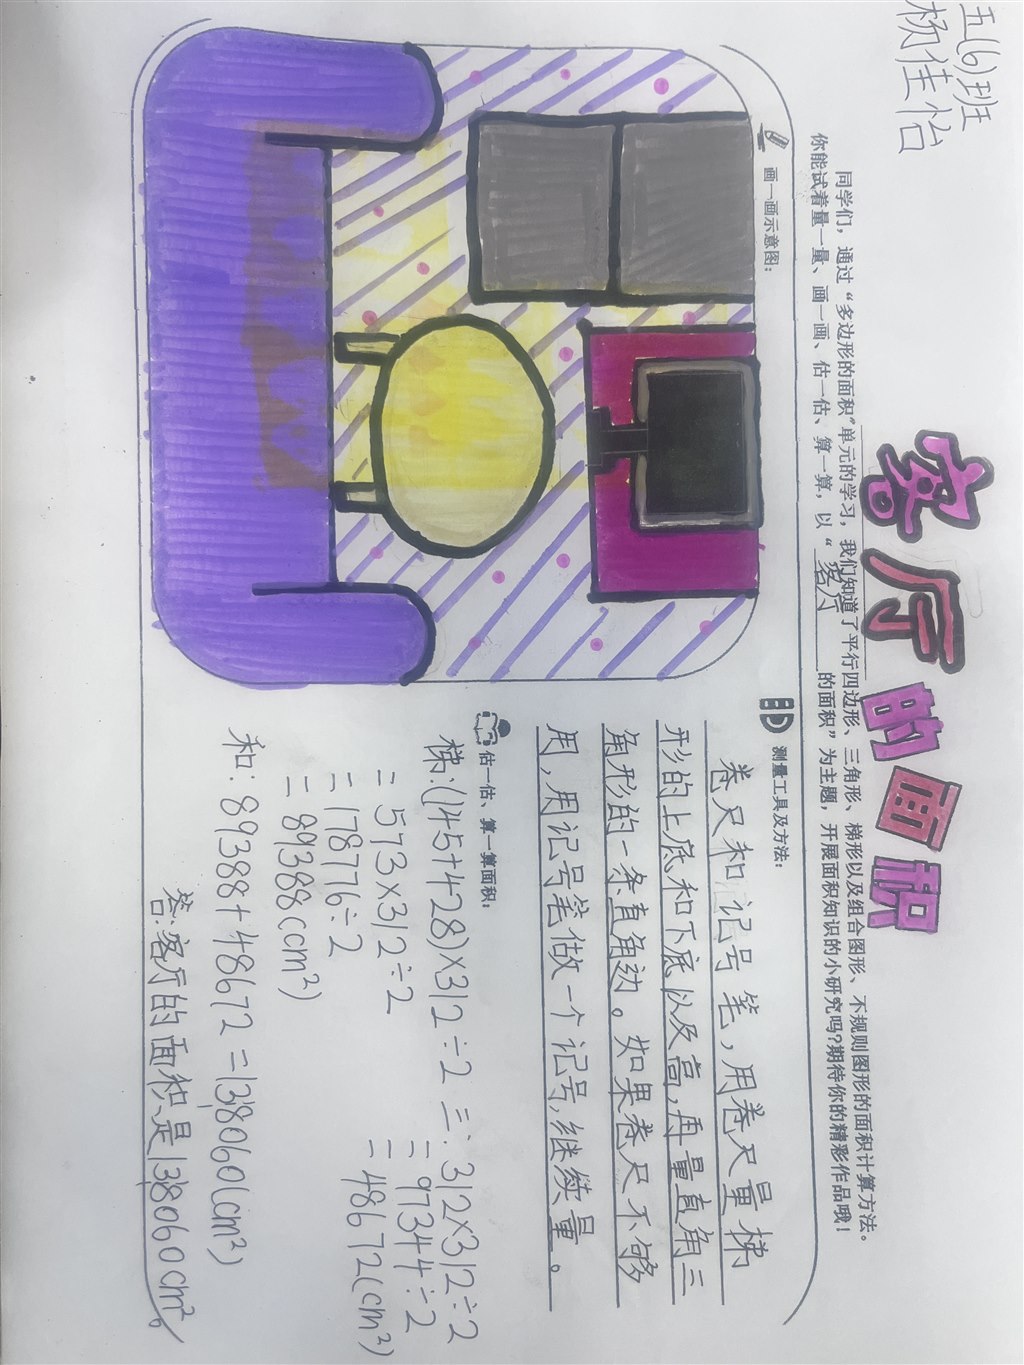 五(6)班
杨佳怡
客厅的面积
同学们，通过“多边形的面积”单元的学习，我们知道了平行四边形、三角形、梯形以及组合图形、不规则图形的面积计算方法。
你能试着量一量、画一画、估一估、算一算，以“客厅的面积”为主题，开展面积知识的小研究吗？期待你的精彩作品哦！
画一画示意图：
测量工具及方法：
卷尺和记号笔，用卷尺量梯
形的上底和下底以及高，再量直角三
角形的一条直角边。如果卷尺不够
用，用记号笔做一个记号，继续量。
估一估、算一算面积：
梯:(145+428)×312÷2
=573×312÷2
=178776÷2
=89388(cm²)
三:312×312÷2
=97344÷2
=48672(cm²)
和:89388+48672=138060(cm²)
答:客厅的面积是138060cm²。